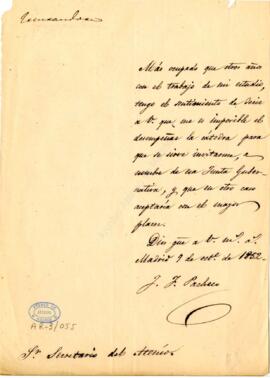 Más ocupado que otros años
con el trabajo de mi estudio,
tengo el sentimiento de decir
a V. que me es imposible el
desempeñar la cátedra para
que se sirve invitarme, a
nombre de esa Junta Guber-
nativa, y que en otro caso
aceptaría con el mayor
placer.
Dios gue a V. m.s a.s
Madrid 9 de oct.e de 1852.
J. F. Pacheco
AR-3/055
Sr. Secretario del Ateneo.